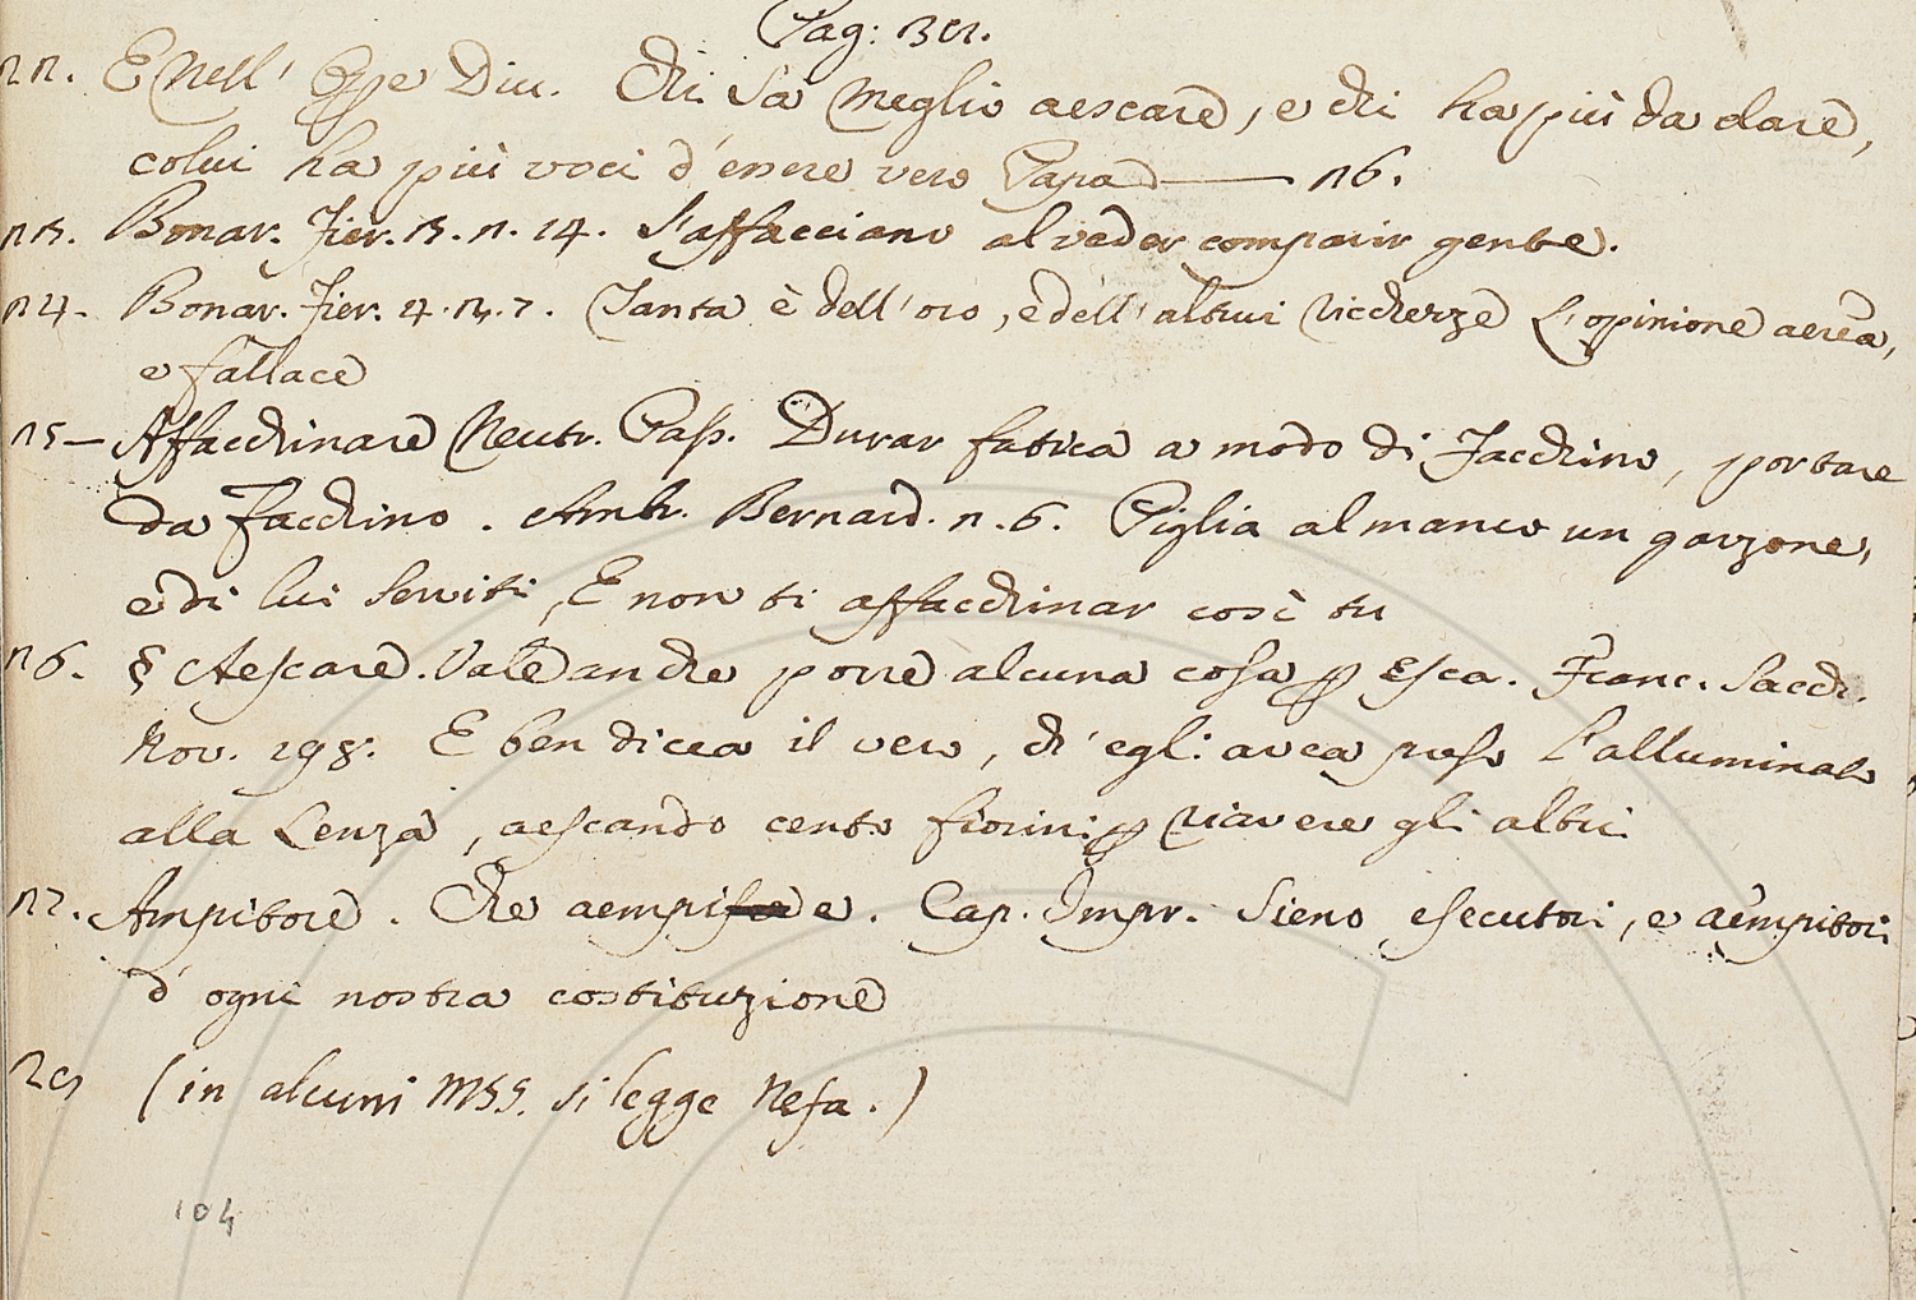 Pag: 32.
22. E nell' Opp. Div. Chi sa meglio aescare, e chi ha più da dare,
colui ha più voci d'essere vero Papa — 26.
23. Bonar. Fier. 3. 2. 14. S'affacciano al veder comparir gente.
24. Bonar. Fier. 4. 2. 7. Tanta è dell'oro, e dell'altrui ricchezze L'opinione aerea,
e fallace
25 — Affacchinare Neutr. Pass. Durar fatica a modo di Facchino, portare
da Facchino. Ambr. Bernard. 2. 6. Piglia almanco un garzone,
e di lui serviti, E non ti affacchinar così tu
26. § Aescare. Vale anche porre alcuna cosa p esca. Franc. Sacch.
Nov. 198. E ben dicea il vero, ch'egli avea preso l'alluminato
alla Lenza, aescando cento fiorini p riavere gli altri
27. Ampitore. Che aempie. Cap. Impr. Sieno esecutori, e aempitori
d'ogni nostra costituzione
29 (in alcuni MSS. si legge Nefa.)
104